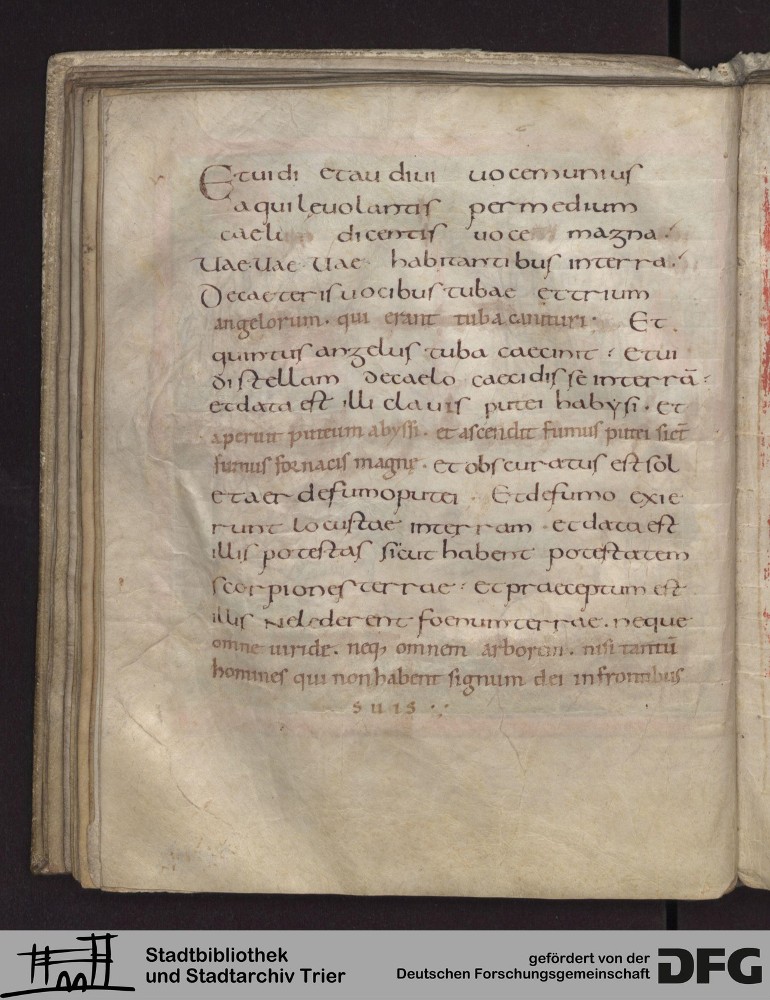 Et uidi et audiui uocem unius
aquile uolantis per medium
caeli dicentis uoce magna.
Uae. Uae. Uae. habitantibus in terra.
De caeteris uocibus tubae et trium
angelorum. qui erant tuba canituri. Et
quintus angelus tuba caecinit. Et ui
di stellam de caelo caecidisse in terrā.
et data est illi clauis putei habẏsi. et
aperuit puteum abyssi. et ascendit fumus putei sicut
fumus fornacis magnę. et obscuratus est sol
et aer de fumo putei. Et de fumo exie
runt locustae in terram et data est
illis potestas sicut habent potestatem
scorpiones terrae. Et praeceptum est
illis Ne lederent foenum terrae. neque
omne uiride. neq; omnem arborem. nisi tantū
homines qui non habent signum dei in frontibus
suis
Stadtbibliothek
und Stadtarchiv Trier
gefördert von der
Deutschen Forschungsgemeinschaft
DFG